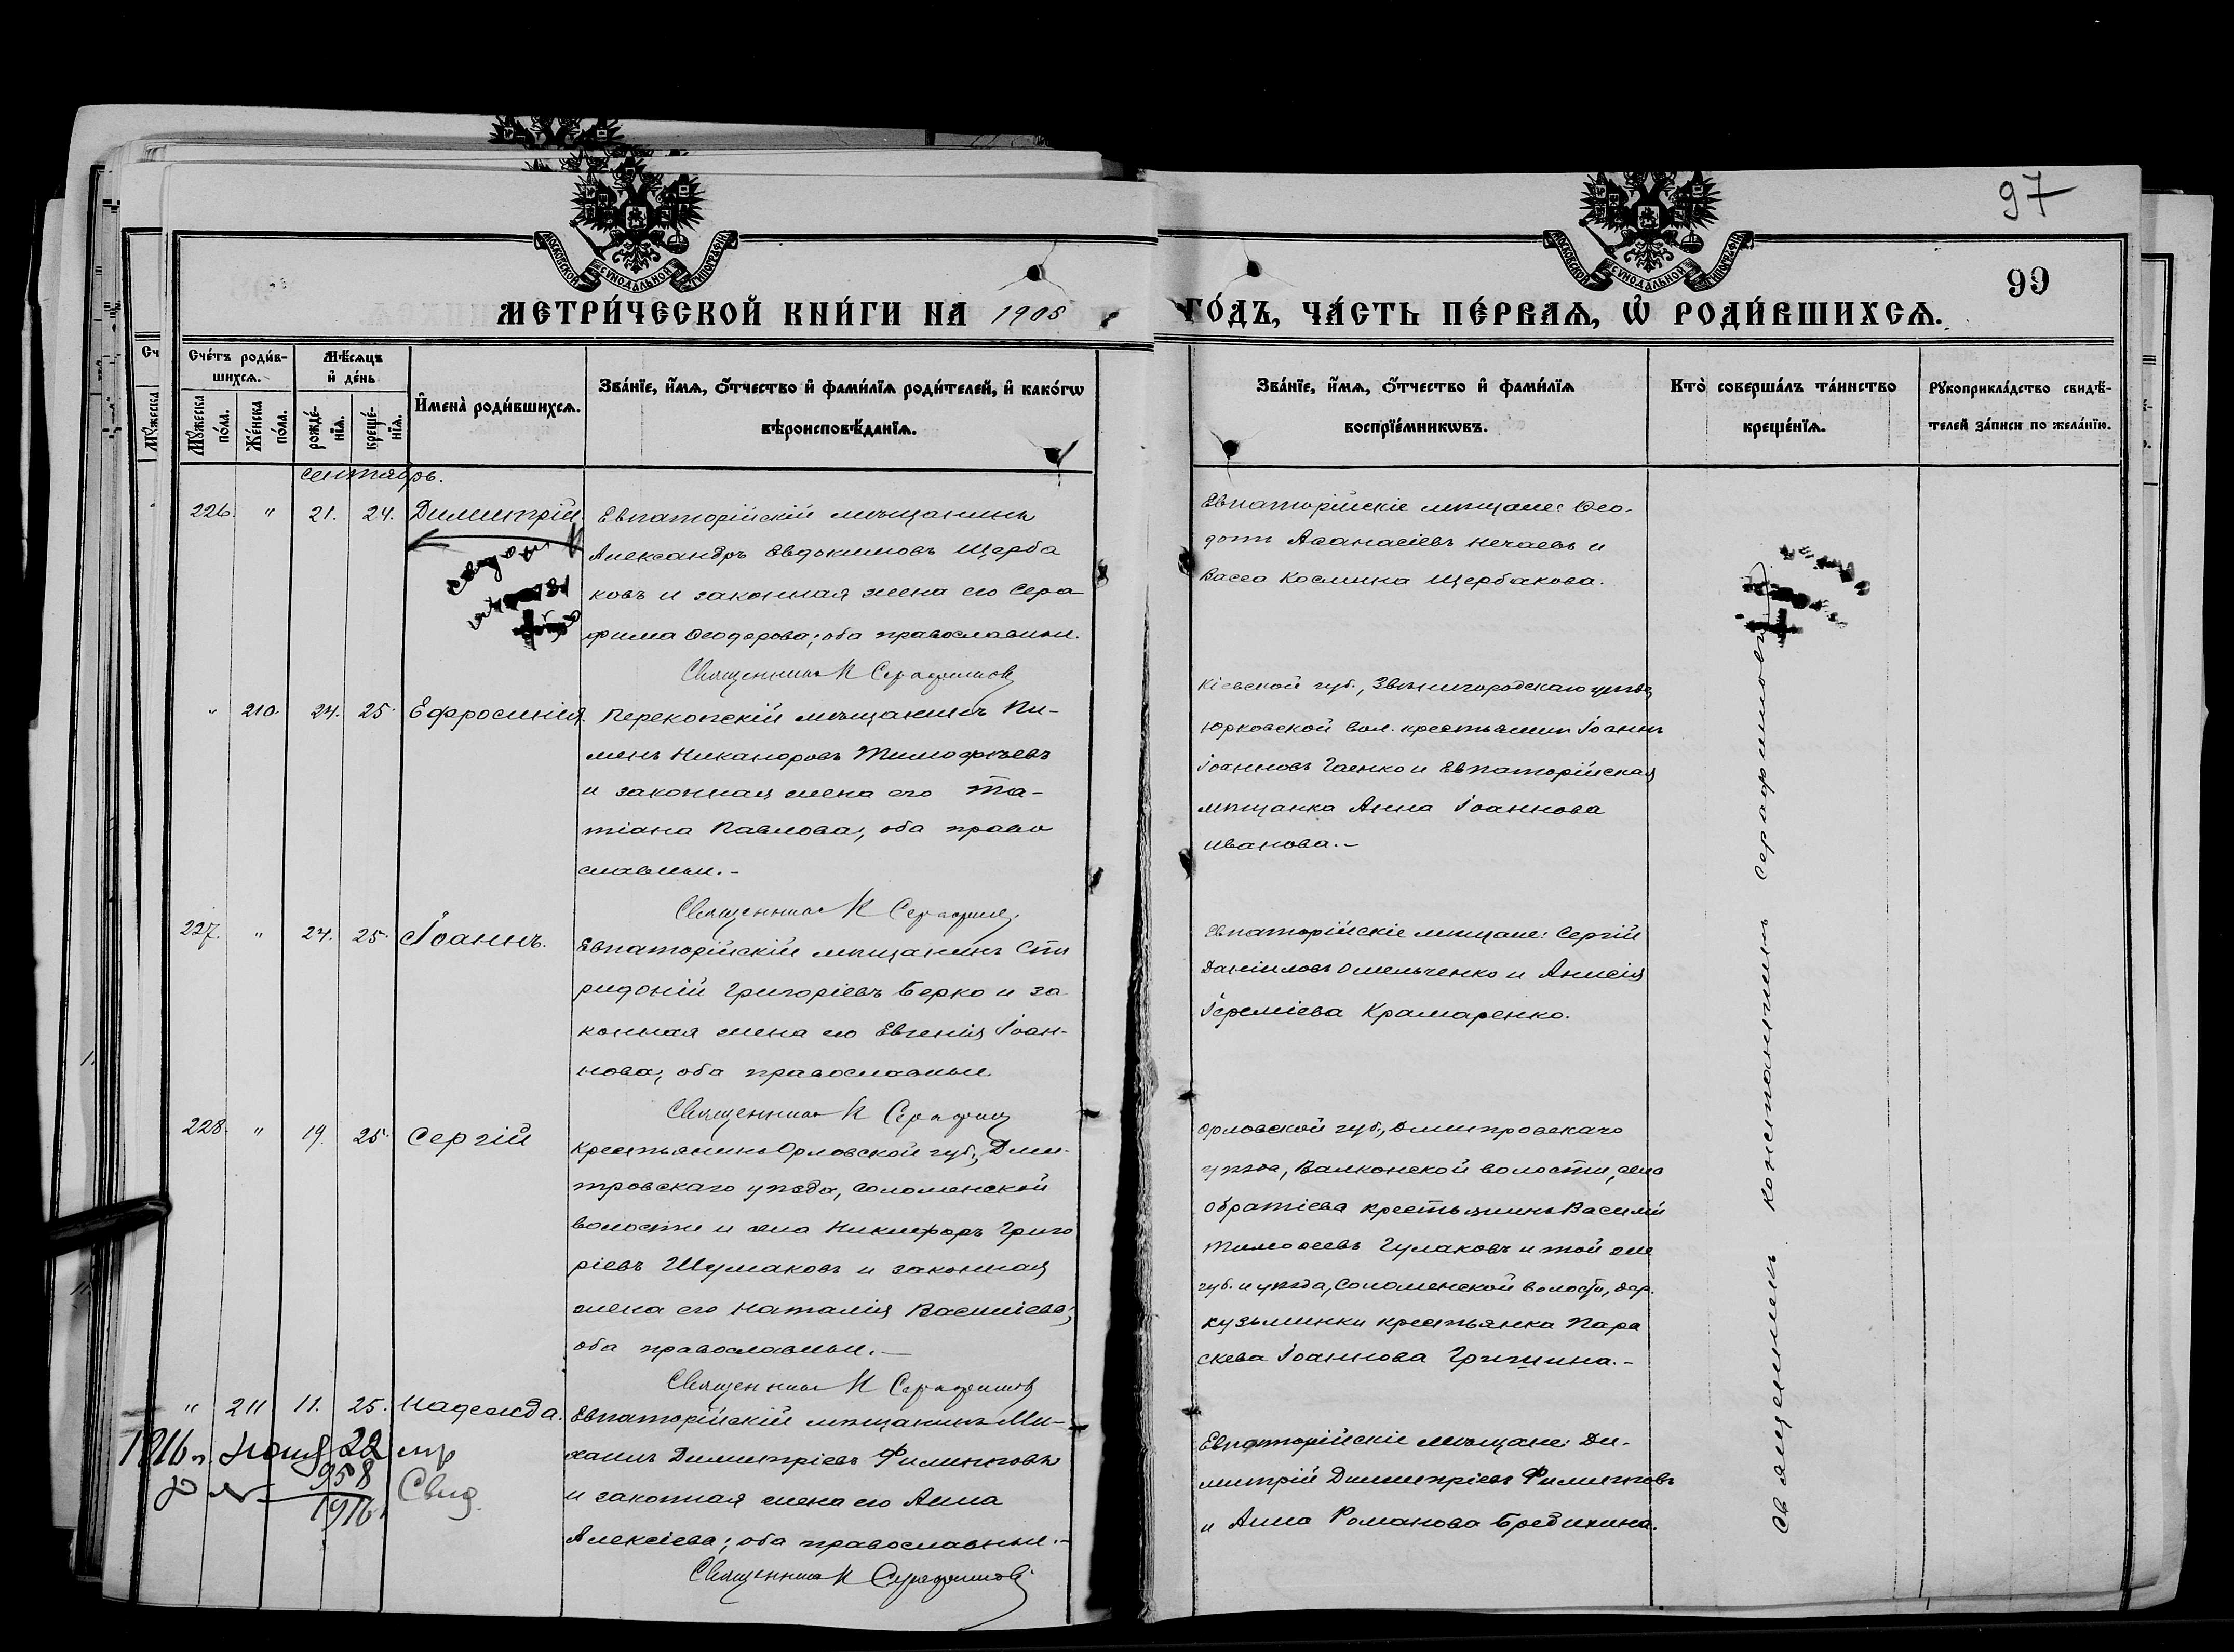 97
99
МОСКОВСКОЙ СѴНОДАЛЬНОЙ ТИПОГРАФІИ
МОСКОВСКОЙ СѴНОДАЛЬНОЙ ТИПОГРАФІИ
МЕТРИ́ЧЕСКОЙ КНИ́ГИ НА 1905
ГО́ДЪ, ЧА́СТЬ ПЕ́РВАѦ, Ѡ҆ РОДИ́ВШИХСѦ.
Сче́тъ роди́в-
шихсѧ.
Мꙋ́жеска по́ла.
Же́нска по́ла.
Мѣ́сѧцъ
и҆ де́нь
рожде́-
нїѧ.
креще́-
нїѧ.
И҆мена̀ роди́вшихсѧ.
Зва́нїе, и҆́мѧ, ѻ҆́тчество и҆ фами́лїѧ роди́телей, и҆ како́гѡ
вѣроисповѣ́данїѧ.
Зва́нїе, и҆́мѧ, ѻ҆́тчество и҆ фами́лїѧ
воспрїе́мникѡвъ.
Кто̀ соверша́лъ та́инство
креще́нїѧ.
Рꙋкоприкла́дство свидѣ́-
телей за́писи по жела́нїю.
Сентябрь.
226. " 21. 24. Димитрій.
Евпаторійскій мѣщанинъ
Александръ Евдокимовъ Щерба
ковъ и законная жена его Сера
фима Ѳеодорова; оба православные.
Священникъ К Серафимовъ
Евпаторійскіе мѣщане: Ѳео-
дотъ Аѳанасіевъ Нечаевъ и
Васса Космина Щербакова.
" 210. 24. 25. Ефросинія.
Перекопскій мѣщанинъ Пи-
менъ Никаноровъ Тимофѣевъ
и законная жена его Та-
тіана Павлова; оба право
славные.-
Священникъ К Серафимовъ
Кіевской губ., Звѣнигородскаго уѣзда
Юрковской вол. крестьянинъ Іоаннъ
Іоанновъ Гаенко и Евпаторійская
мѣщанка Анна Іоаннова
Иванова.-
227. " 24. 25. Іоаннъ.
Евпаторійскій мѣщанинъ Спи
ридоній Григоріевъ Берко и за
конная жена его Евгенія Іоан-
нова; оба православные.
Священникъ К Серафимовъ
Евпаторійскіе мѣщане: Сергій
Даніиловъ Омельченко и Анисія
Іереміева Крамаренко.
228. " 19. 25. Сергій
Крестьянинъ Орловской губ., Дми-
тровскаго уѣзда, Соломенской
волости и села Никифоръ Григо
ріевъ Шумаковъ и законная
жена его Наталія Василіева;
оба православные.-
Священникъ К Серафимовъ
Орловской губ., Дмитровскаго
уѣзда, Балконской волости, села
Обратіева крестьянинъ Василій
Тимоѳеевъ Гулаковъ и той же
губ. и уѣзда, Соломенской волости, дер.
Кузьминки крестьянка Пара
скева Іоаннова Гришина.-
" 211 11. 25. Надежда.
Евпаторійскій мѣщанинъ Ми-
хаилъ Димитріевъ Филипповъ
и законная жена его Анна
Алексіева; оба православные.-
Священникъ К Серафимовъ
Евпаторійскіе мѣщане: Ди-
митрій Димитріевъ Филипповъ
и Анна Романова Бредихина.
1916 г. 22
958
1916 Свид.
Священникъ Константинъ Серафимовъ